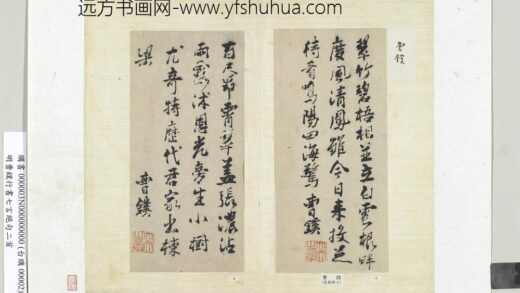 远方书画网-www.yfshuhua.com
曹鏷
翠竹碧梧相並立白雲根畔
度風清鳳雛今日来投足
待看鳴陽四海驚 曹鏷
百尺昂霄翠盖張濃沾
雨露沐恩光旁生小樹
尤奇特歷代君家出棟
梁 曹鏷
曹鏷
購書 000003N000000000 (台購 00802)
明曹鏷行書七言絕句二首